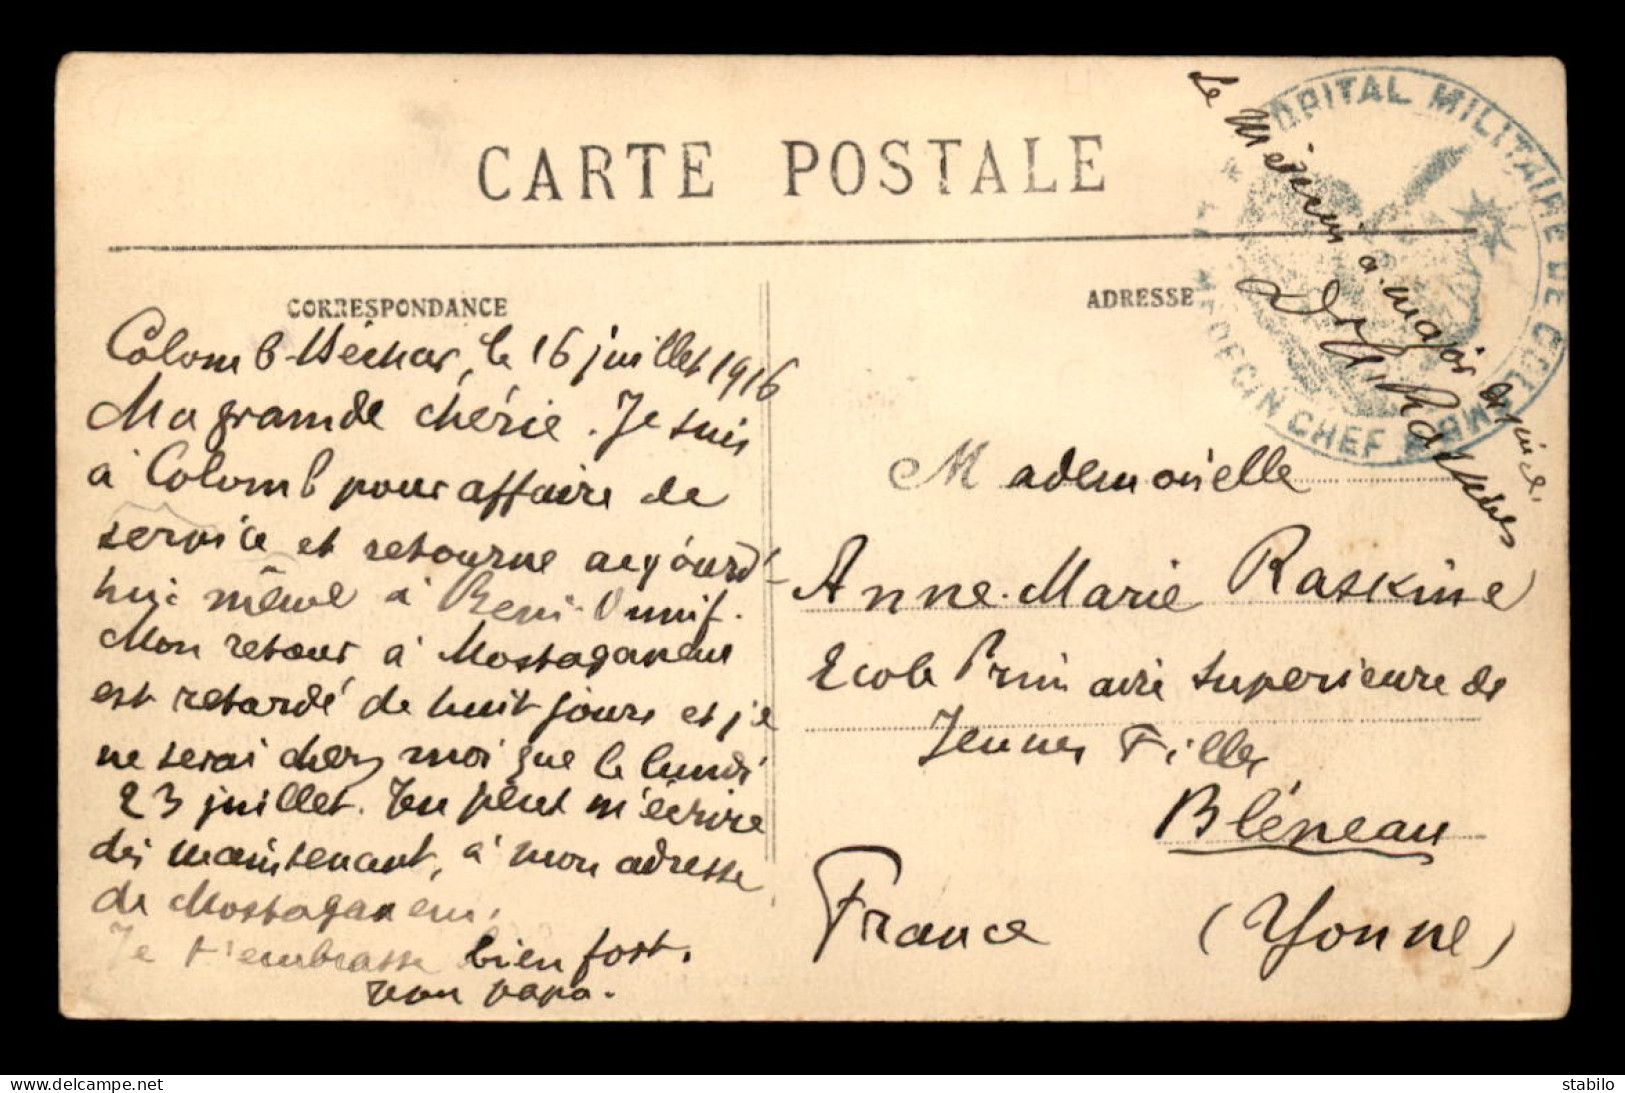 CARTE POSTALE
CORRESPONDANCE
Colomb-Béchar, le 16 juillet 1916
Ma grande chérie. Je suis
à Colomb pour affaire de
service et retourne aujourd'
hui même à Beni-Ounif.
Mon retour à Mostaganem
est retardé de huit jours et je
ne serai chez moi que le lundi
23 juillet. Tu peux m'écrire
dès maintenant, à mon adresse
de Mostaganem.
Je t'embrasse bien fort.
ton papa.
ADRESSE
Mademoiselle
Anne-Marie Raskine
Ecole Primaire Superieure de
Jeunes Filles
Bléneau
France (Yonne)
HOPITAL MILITAIRE DE COLOMB
MEDECIN CHEF
Le Médecin à major
stabilo
delcampe.net